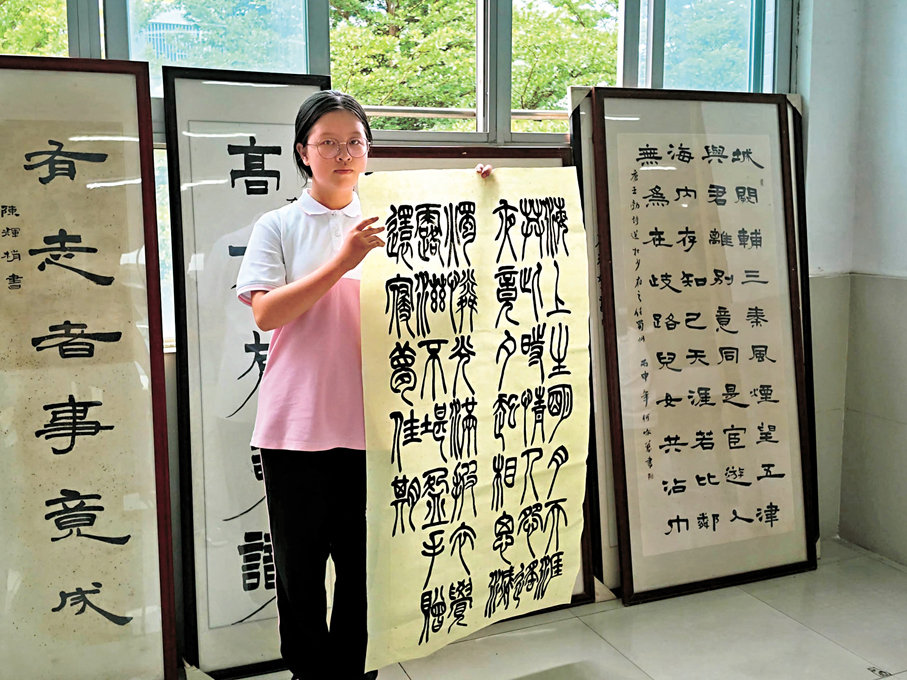 有志者事竟成
陳輝書
高
海上生明月天涯
共此時情人怨遙
夜竟夕起相思滅
燭憐光滿披衣覺
露滋不堪盈手贈
還寢夢佳期
城闕輔三秦風煙望五津
與君離別意同是宦遊人
海內存知己天涯若比鄰
無為在岐路兒女共沾巾
唐王勃詩送杜少府之任蜀州 丙申年